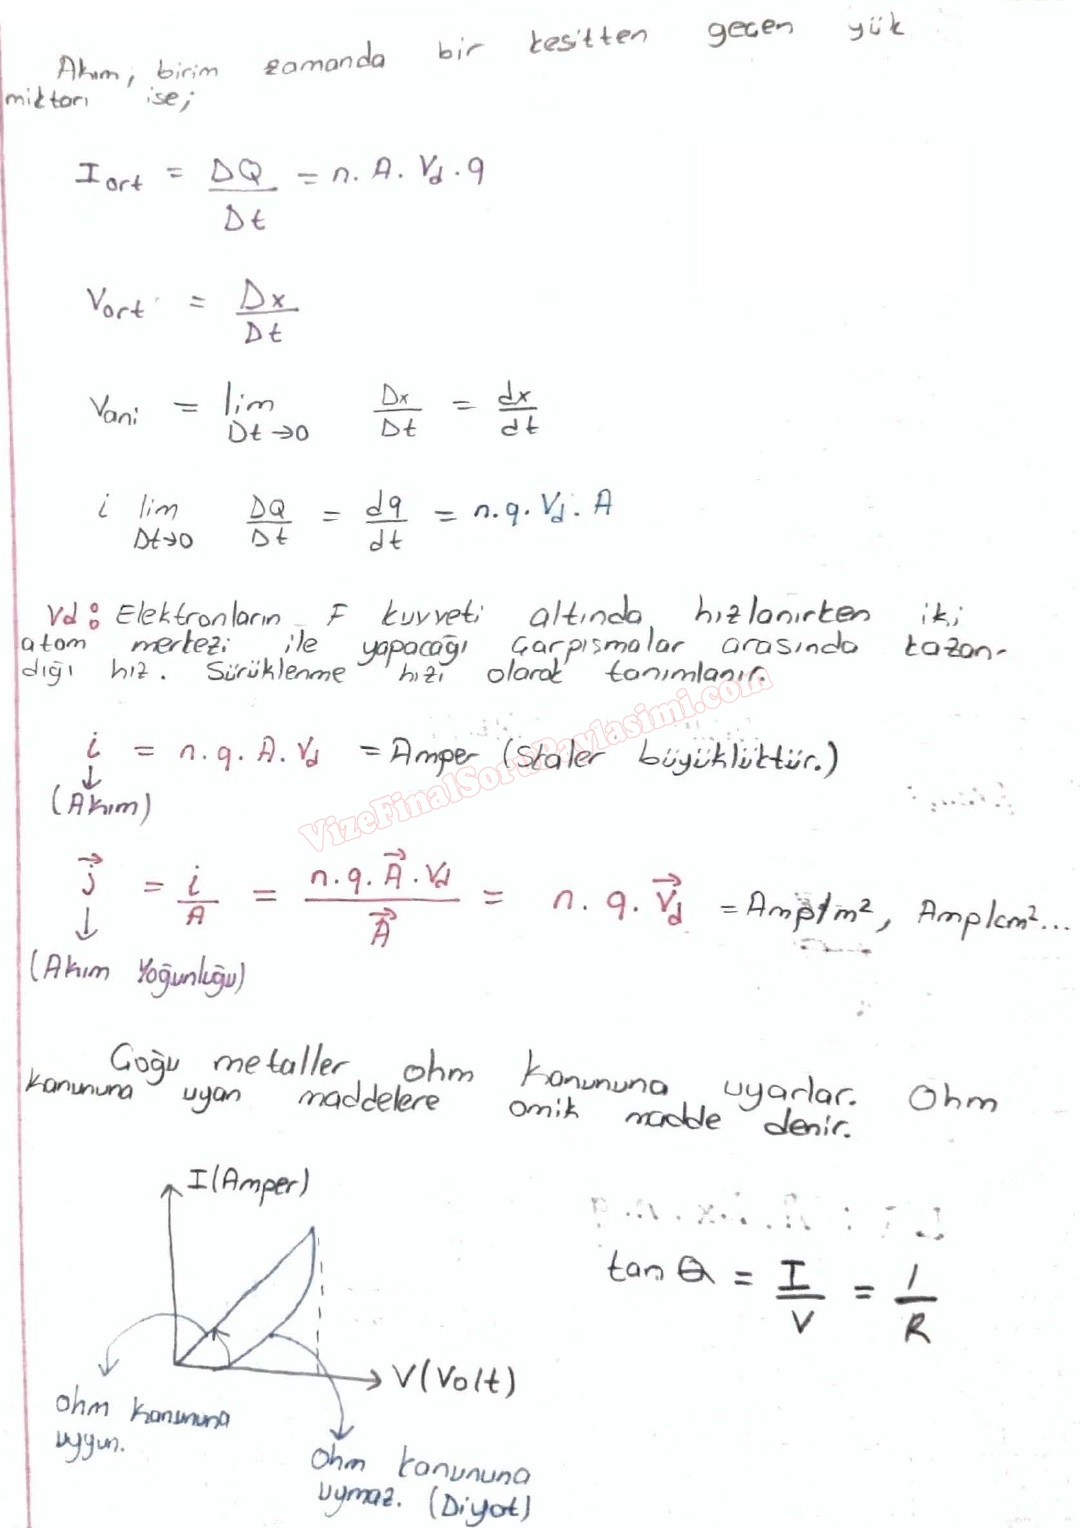 Akım, birim zamanda bir kesitten geçen yük
miktarı ise;
I ort = ΔQ / Δt = n. A. Vd . q
Vort = Δx / Δt
Vani = lim Δt→0 Δx / Δt = dx / dt
i lim Δt→0 ΔQ / Δt = dq / dt = n. q. Vd. A
Vd: Elektronların F kuvveti altında hızlanırken iki
atom merkezi ile yapacağı çarpışmalar arasında kazan-
dığı hız. Sürüklenme hızı olarak tanımlanır.
i = n. q. A. Vd = Amper (Skaler büyüklüktür.)
(Akım)
j⃗ = i / A = n. q. A⃗. Vd / A⃗ = n. q. V⃗d = Amp/m², Amp/cm²...
(Akım Yoğunluğu)
Çoğu metaller ohm kanununa uyarlar. Ohm
kanununa uyan maddelere omik madde denir.
I (Amper)
tan θ = I / V = 1 / R
V (Volt)
ohm kanununa
uygun.
ohm kanununa
uymaz. (Diyot)
VizeFinalSoruPaylasimi.com